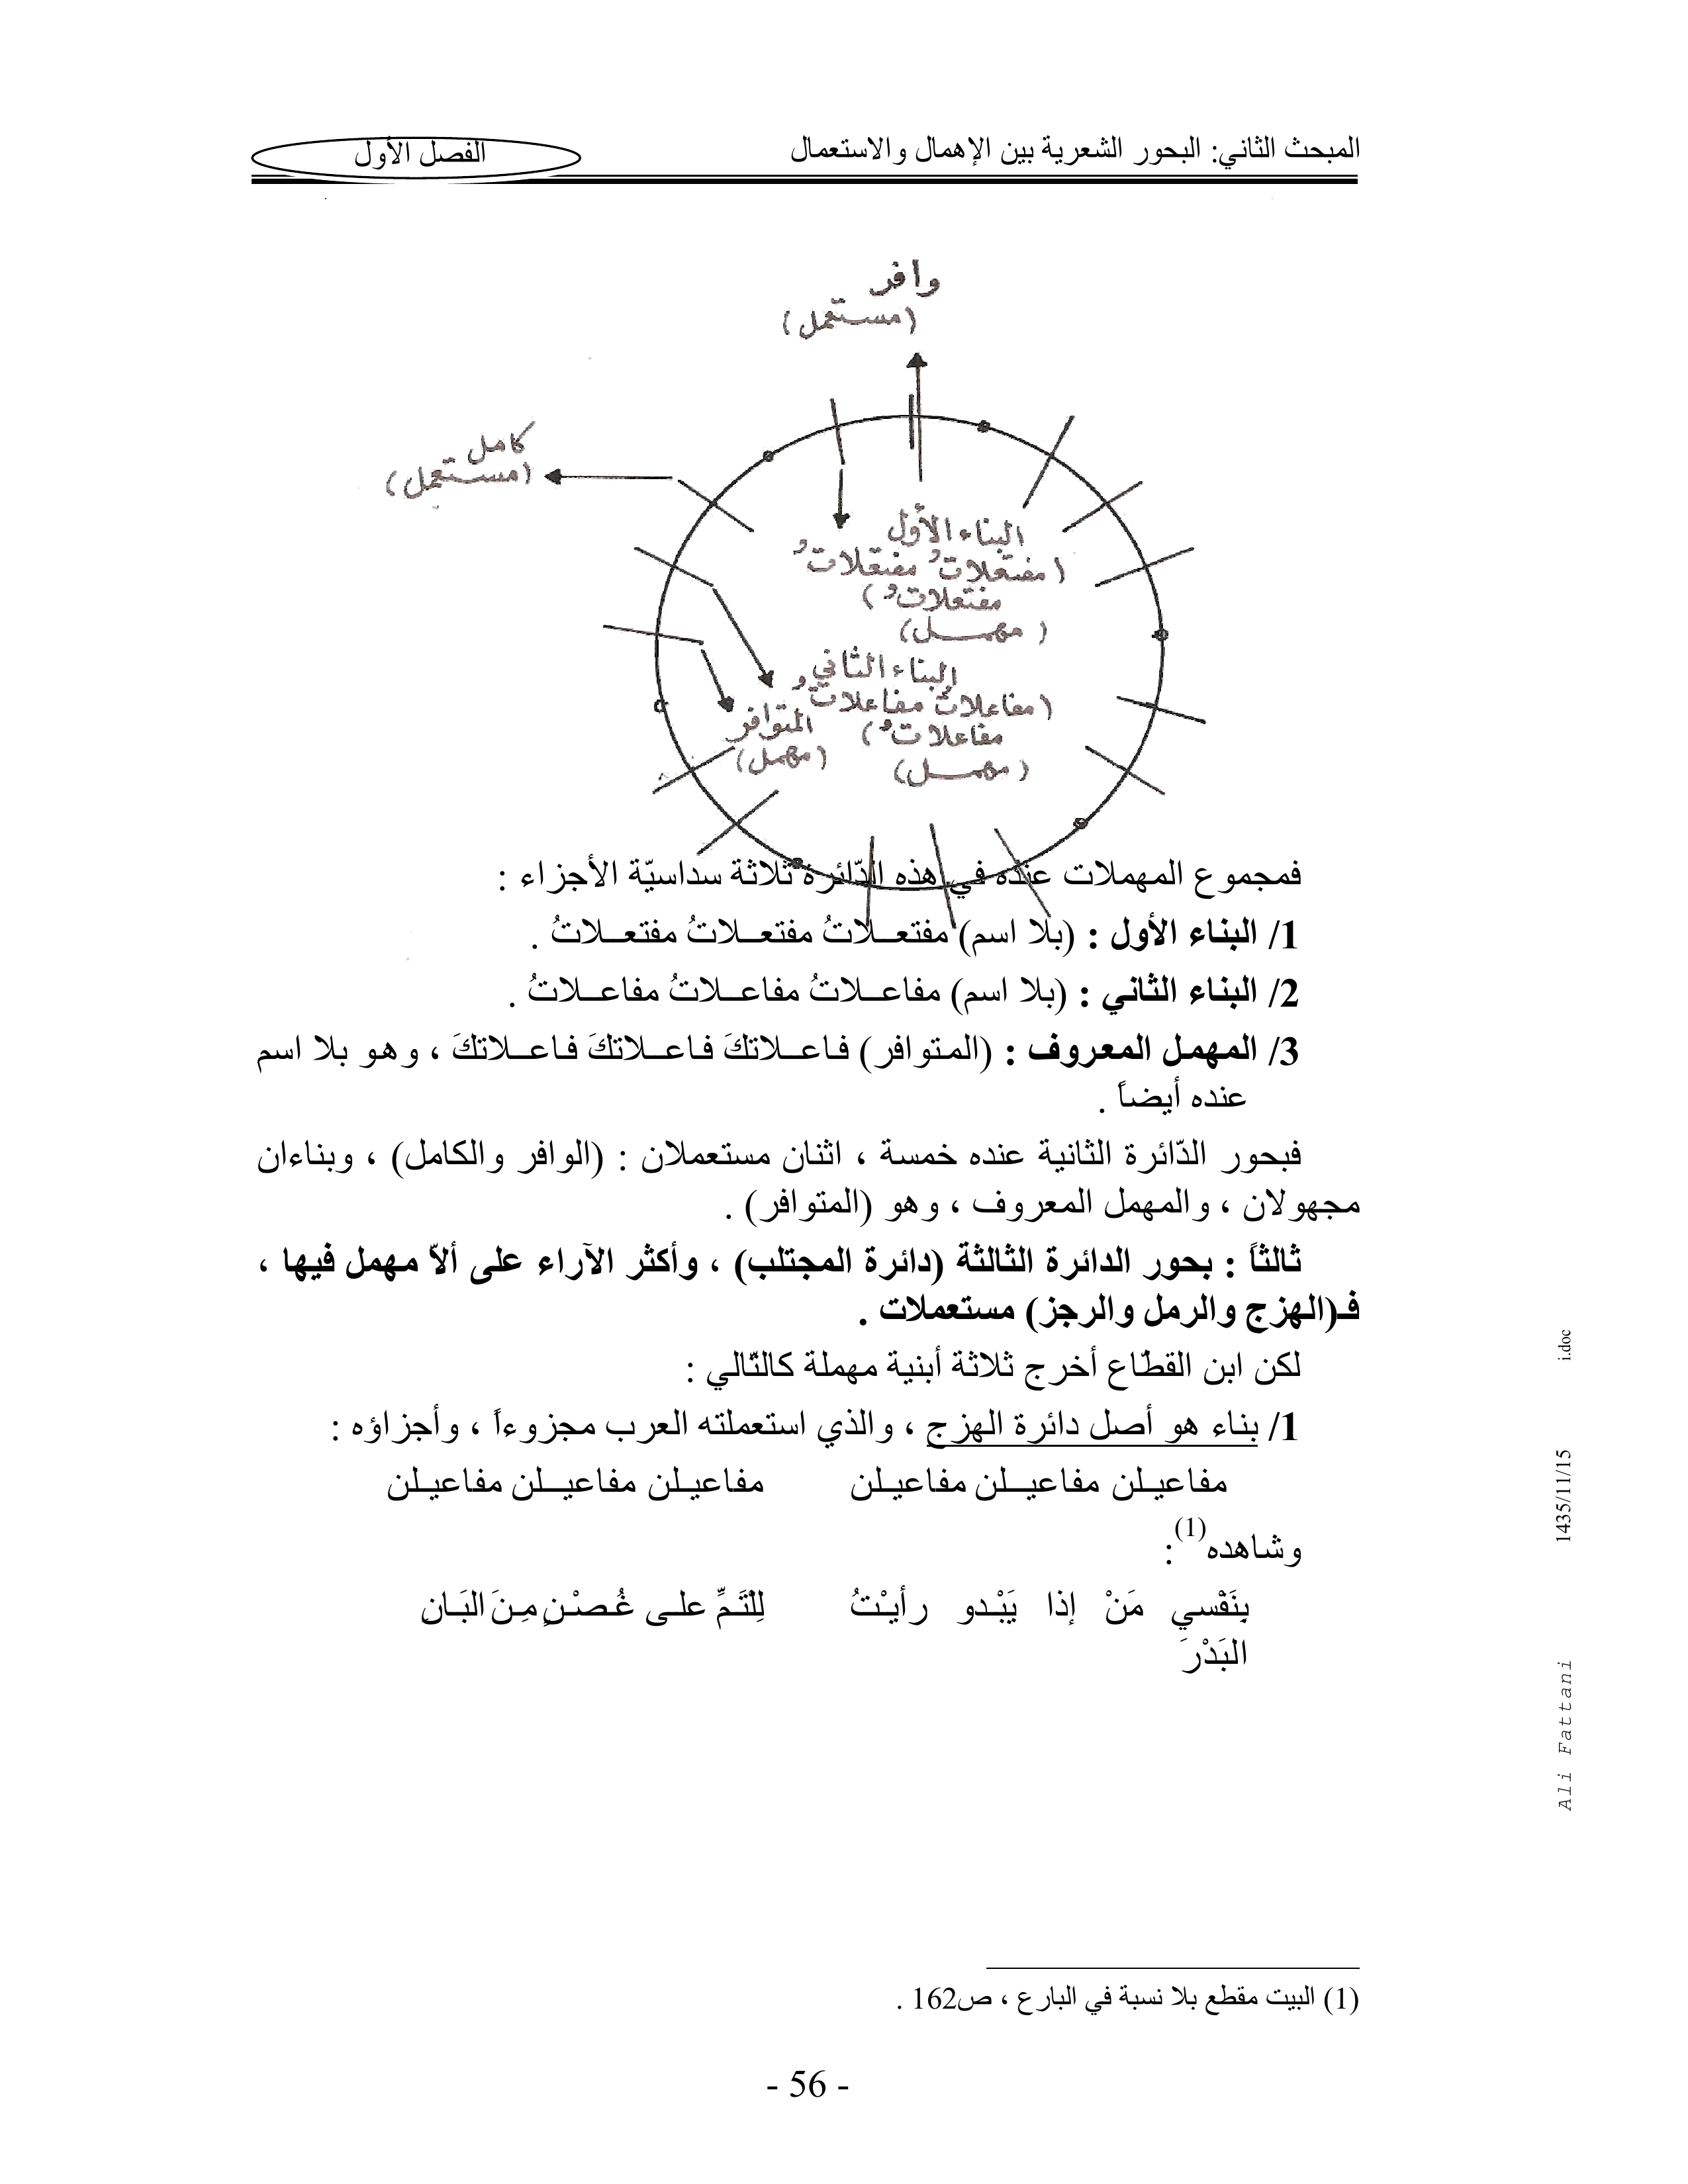 المبحث الثاني: البحور الشعرية بين الإهمال والاستعمال
الفصل الأول
وافر
(مستعمل)
كامل
(مستعمل)
البناء الأوّل
(مفتعلاتُ مفتعلاتُ
مفتعلاتُ)
(مهمل)
البناء الثاني
(مفاعلاتُ مفاعلاتُ
مفاعلاتُ)
(مهمل)
المتوافر
(مهمل)
فمجموع المهملات عنده في هذه الدّائرة ثلاثة سداسيّة الأجزاء :
1/ البناء الأول : (بلا اسم) مفتعـلاتُ مفتعـلاتُ مفتعـلاتُ .
2/ البناء الثاني : (بلا اسم) مفاعـلاتُ مفاعـلاتُ مفاعـلاتُ .
3/ المهمل المعروف : (المتوافر) فاعـلاتكَ فاعـلاتكَ فاعـلاتكَ ، وهو بلا اسم
عنده أيضاً .
فبحور الدّائرة الثانية عنده خمسة ، اثنان مستعملان : (الوافر والكامل) ، وبناءان
مجهولان ، والمهمل المعروف ، وهو (المتوافر) .
ثالثاً : بحور الدائرة الثالثة (دائرة المجتلب) ، وأكثر الآراء على ألاّ مهمل فيها ،
فـ(الهزج والرمل والرجز) مستعملات .
لكن ابن القطّاع أخرج ثلاثة أبنية مهملة كالتّالي :
1/ بناء هو أصل دائرة الهزج ، والذي استعملته العرب مجزوءاً ، وأجزاؤه :
مفاعيـلن مفاعيـلن مفاعيـلن مفاعيـلن مفاعيـلن مفاعيـلن
وشاهده(1):
بِنَفْسي مَنْ إذا يَبْدو رأيْتُ لِلْتَمِّ على غُصْنٍ مِنَ البَانِ
البَدْرَ
(1) البيت مقطع بلا نسبة في البارع ، ص162 .
- 56 -
i.doc
1435/11/15
Ali Fattani